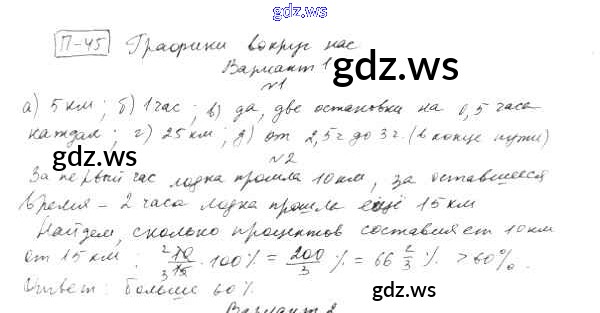 gdz.ws
П-45 Графики вокруг нас
Вариант 1
№1
а) 5 км; б) 1 час; в) да, две остановки на 0,5 часа
каждая; г) 25 км; д) от 2,5 ч до 3 ч. (в конце пути)
№2
За первый час лодка прошла 10 км, за оставшееся
время – 2 часа лодка прошла ещё 15 км
Найдем, сколько процентов составляет 10 км
от 15 км: 10/15 · 100% = 200/3 % = 66 2/3 % > 60%.
Ответ: больше 60%.
Вариант 2
gdz.ws
gdz.ws
gdz.ws
gdz.ws